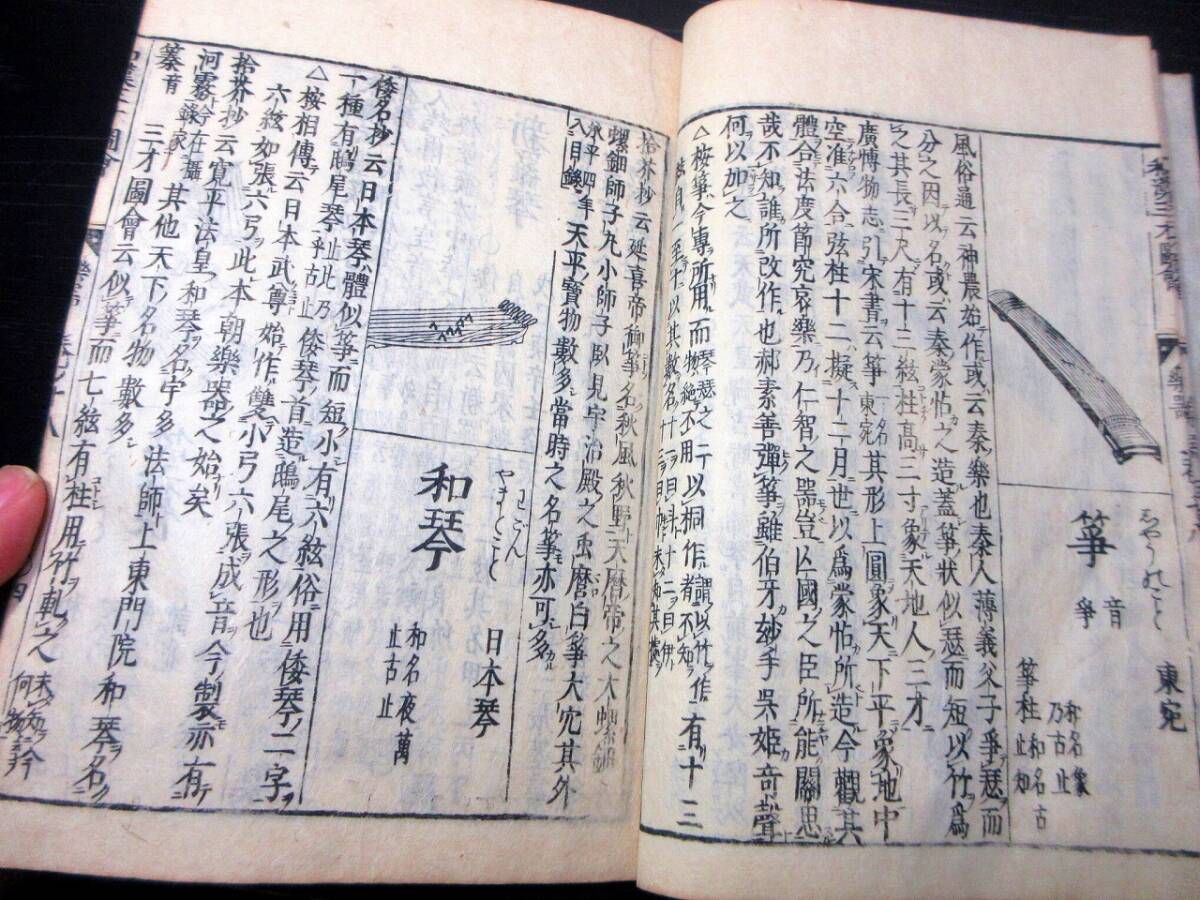 和漢三才圖會
箏
音
爭
しやうのこと
東宛
和名象
乃古止
箏柱和名古
止知
風俗通云神農始作或云秦樂也秦人薄義父子爭瑟而
分之因以名或云秦蒙恬之造蓋箏狀似瑟而短以竹爲
之其長三尺有十三絃柱高三寸象天地人三才
廣博物志引宋書云箏東宛名其形上圓象天下平象地中
空准六合弦柱十二擬十二月世以爲蒙恬所造今觀其
體合法度節究哀樂乃仁智之器豈亡國之臣所能關思
哉不知誰所改作也郝素善彈箏雖伯牙妙手吳姬奇聲
何以加之
△桉箏今專所用而琴瑟之二物絶不用以桐作者不知有十三
絃自一至十以其數名
拾芥抄云延喜帝御箏名秋風秋野天曆帝之大螺鈿
螺鈿師子丸小師子臥見宇治殿之虫麿白箏大穴其外
承平四年入目錄天平寶物數多當時之名箏亦可多
和琴
わごん
やまとこと
日本琴
和名夜萬
止古止
倭名抄云日本琴體似箏而短小有六絃俗用倭琴二字
一種有鴟尾琴止此乃乎古止倭琴首造鴟尾之形也
△桉相傳云日本武尊始作雙小弓六張成音今製亦有
六絃如張六弓此本朝樂器之始矣
拾芥抄云寬平法皇和琴名宇多法師上東門院和琴名
河霧今在講錄家其他天下名物數多
筝音 三才圖會云似箏而七絃有柱用竹軋之